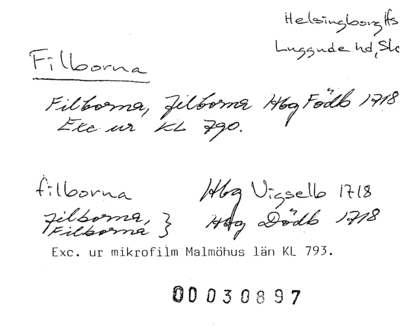 Helsingborg lfs
Luggude hd, Sk
Filborna
Filborna, filborna Hbg Födb 1718
Exc ur KL 790.
filborna Hbg Vigselb 1718
filborna, }
Filborna } Hbg Dödb 1718
Exc. ur mikrofilm Malmöhus län KL 793.
00030897